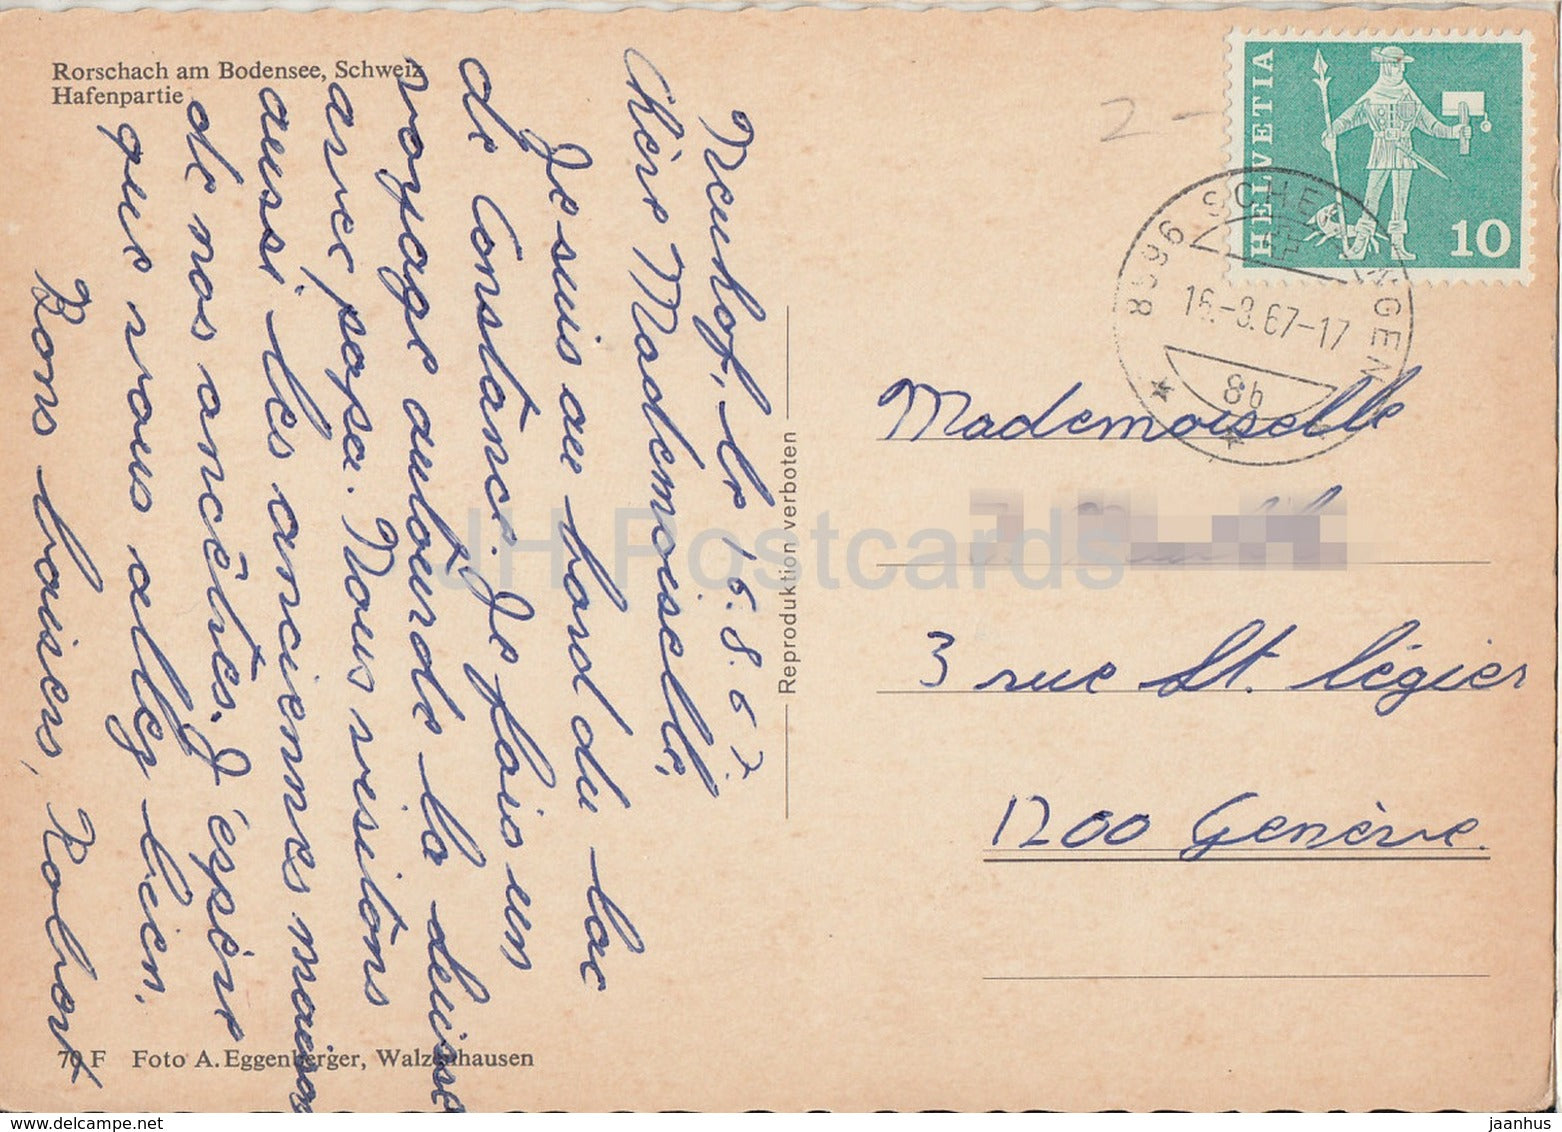 Rorschach am Bodensee, Schweiz
Hafenpartie
Neuhof, le 15.8.67.
Chère Mademoiselle,
Je suis au bord du lac
de Constance. Je fais un
voyage autour de la Suisse
avec papa. Nous visitons
aussi les anciennes maisons
de nos ancêtres. J'espère
que vous allez bien.
Bons baisers, Robert
70 F Foto A. Eggenberger, Walzenhausen
Reproduktion verboten
2-
HELVETIA
10
8596 SCHE NGEN
16.-8.67-17
8b
Mademoiselle
3 rue St. Légier
1200 Genève.
JH Postcards
delcampe.net
jaanhus